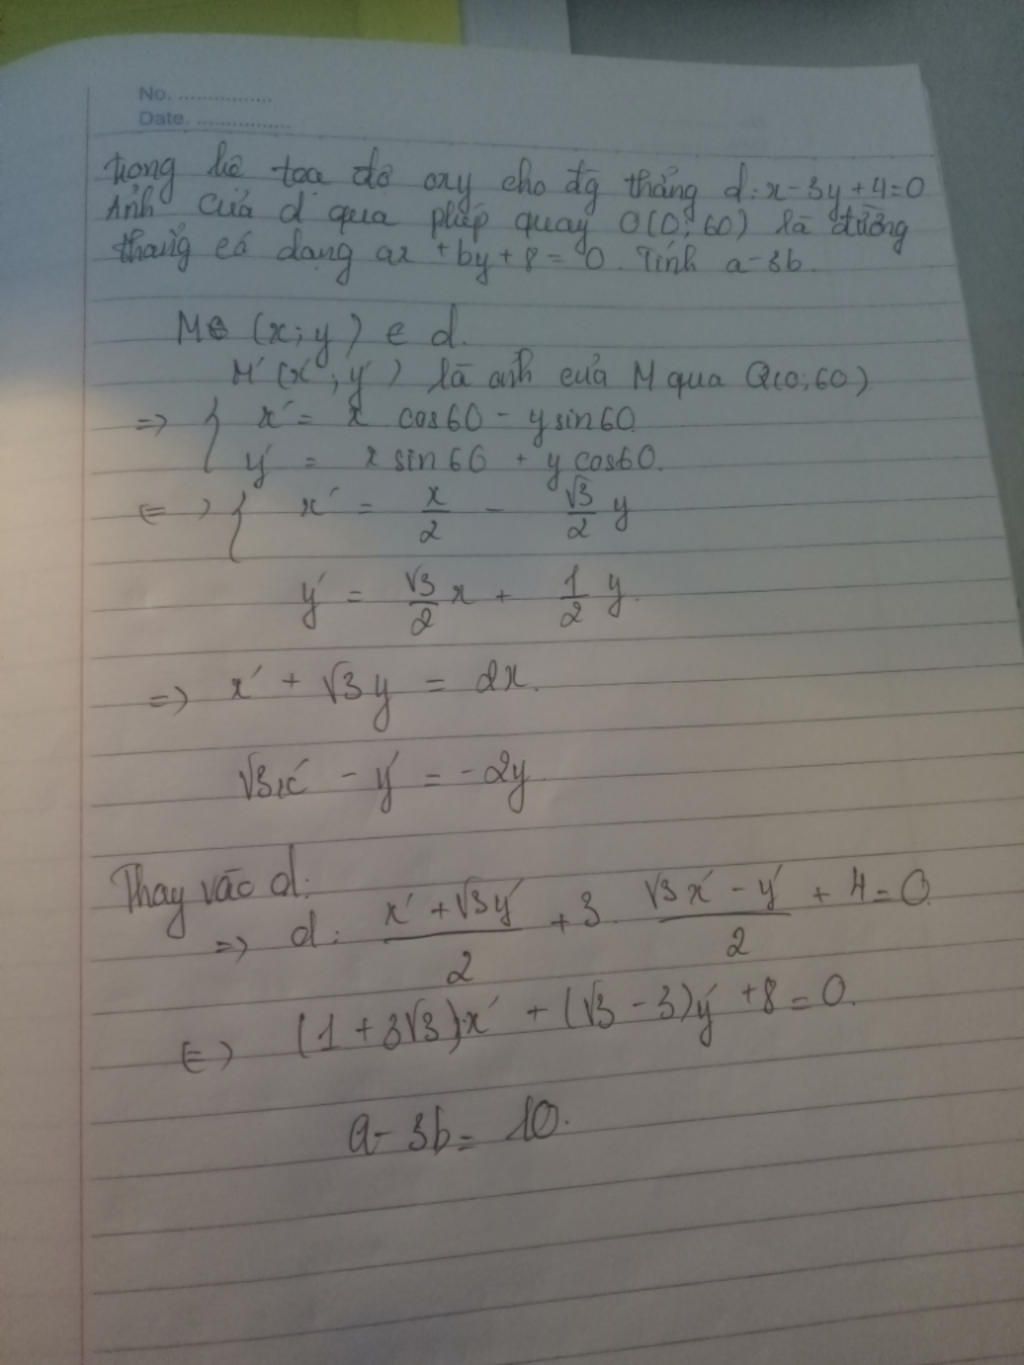 No. ................
Date. ................
trong hê toa đô oxy cho đg thẳng d: x - 3y + 4 = 0
Ảnh của d qua phép quay O(0; 60) là đường
thẳng có dang ax + by + 8 = 0. Tính a - 3b.
M (x; y) ∈ d.
M'(x'; y') là ảnh của M qua Q(0; 60)
=> { x' = x cos60 - y sin60
y' = x sin60 + y cos60.
<=> { x' = x/2 - √3/2 y
y' = √3/2 x + 1/2 y.
=> x' + √3y = 2x.
√3x' - y' = -2y.
Thay vào d:
=> d: (x' + √3y')/2 + 3. (√3x' - y')/2 + 4 = 0
<=> (1 + 3√3)x' + (√3 - 3)y' + 8 = 0.
a - 3b = 10.